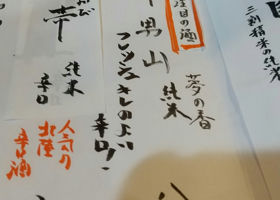 三割精米の純
注目の酒
夢の香
純米
男山
フレッシュキレのよい
辛口
純米
辛口
人気の
北陸
辛口酒